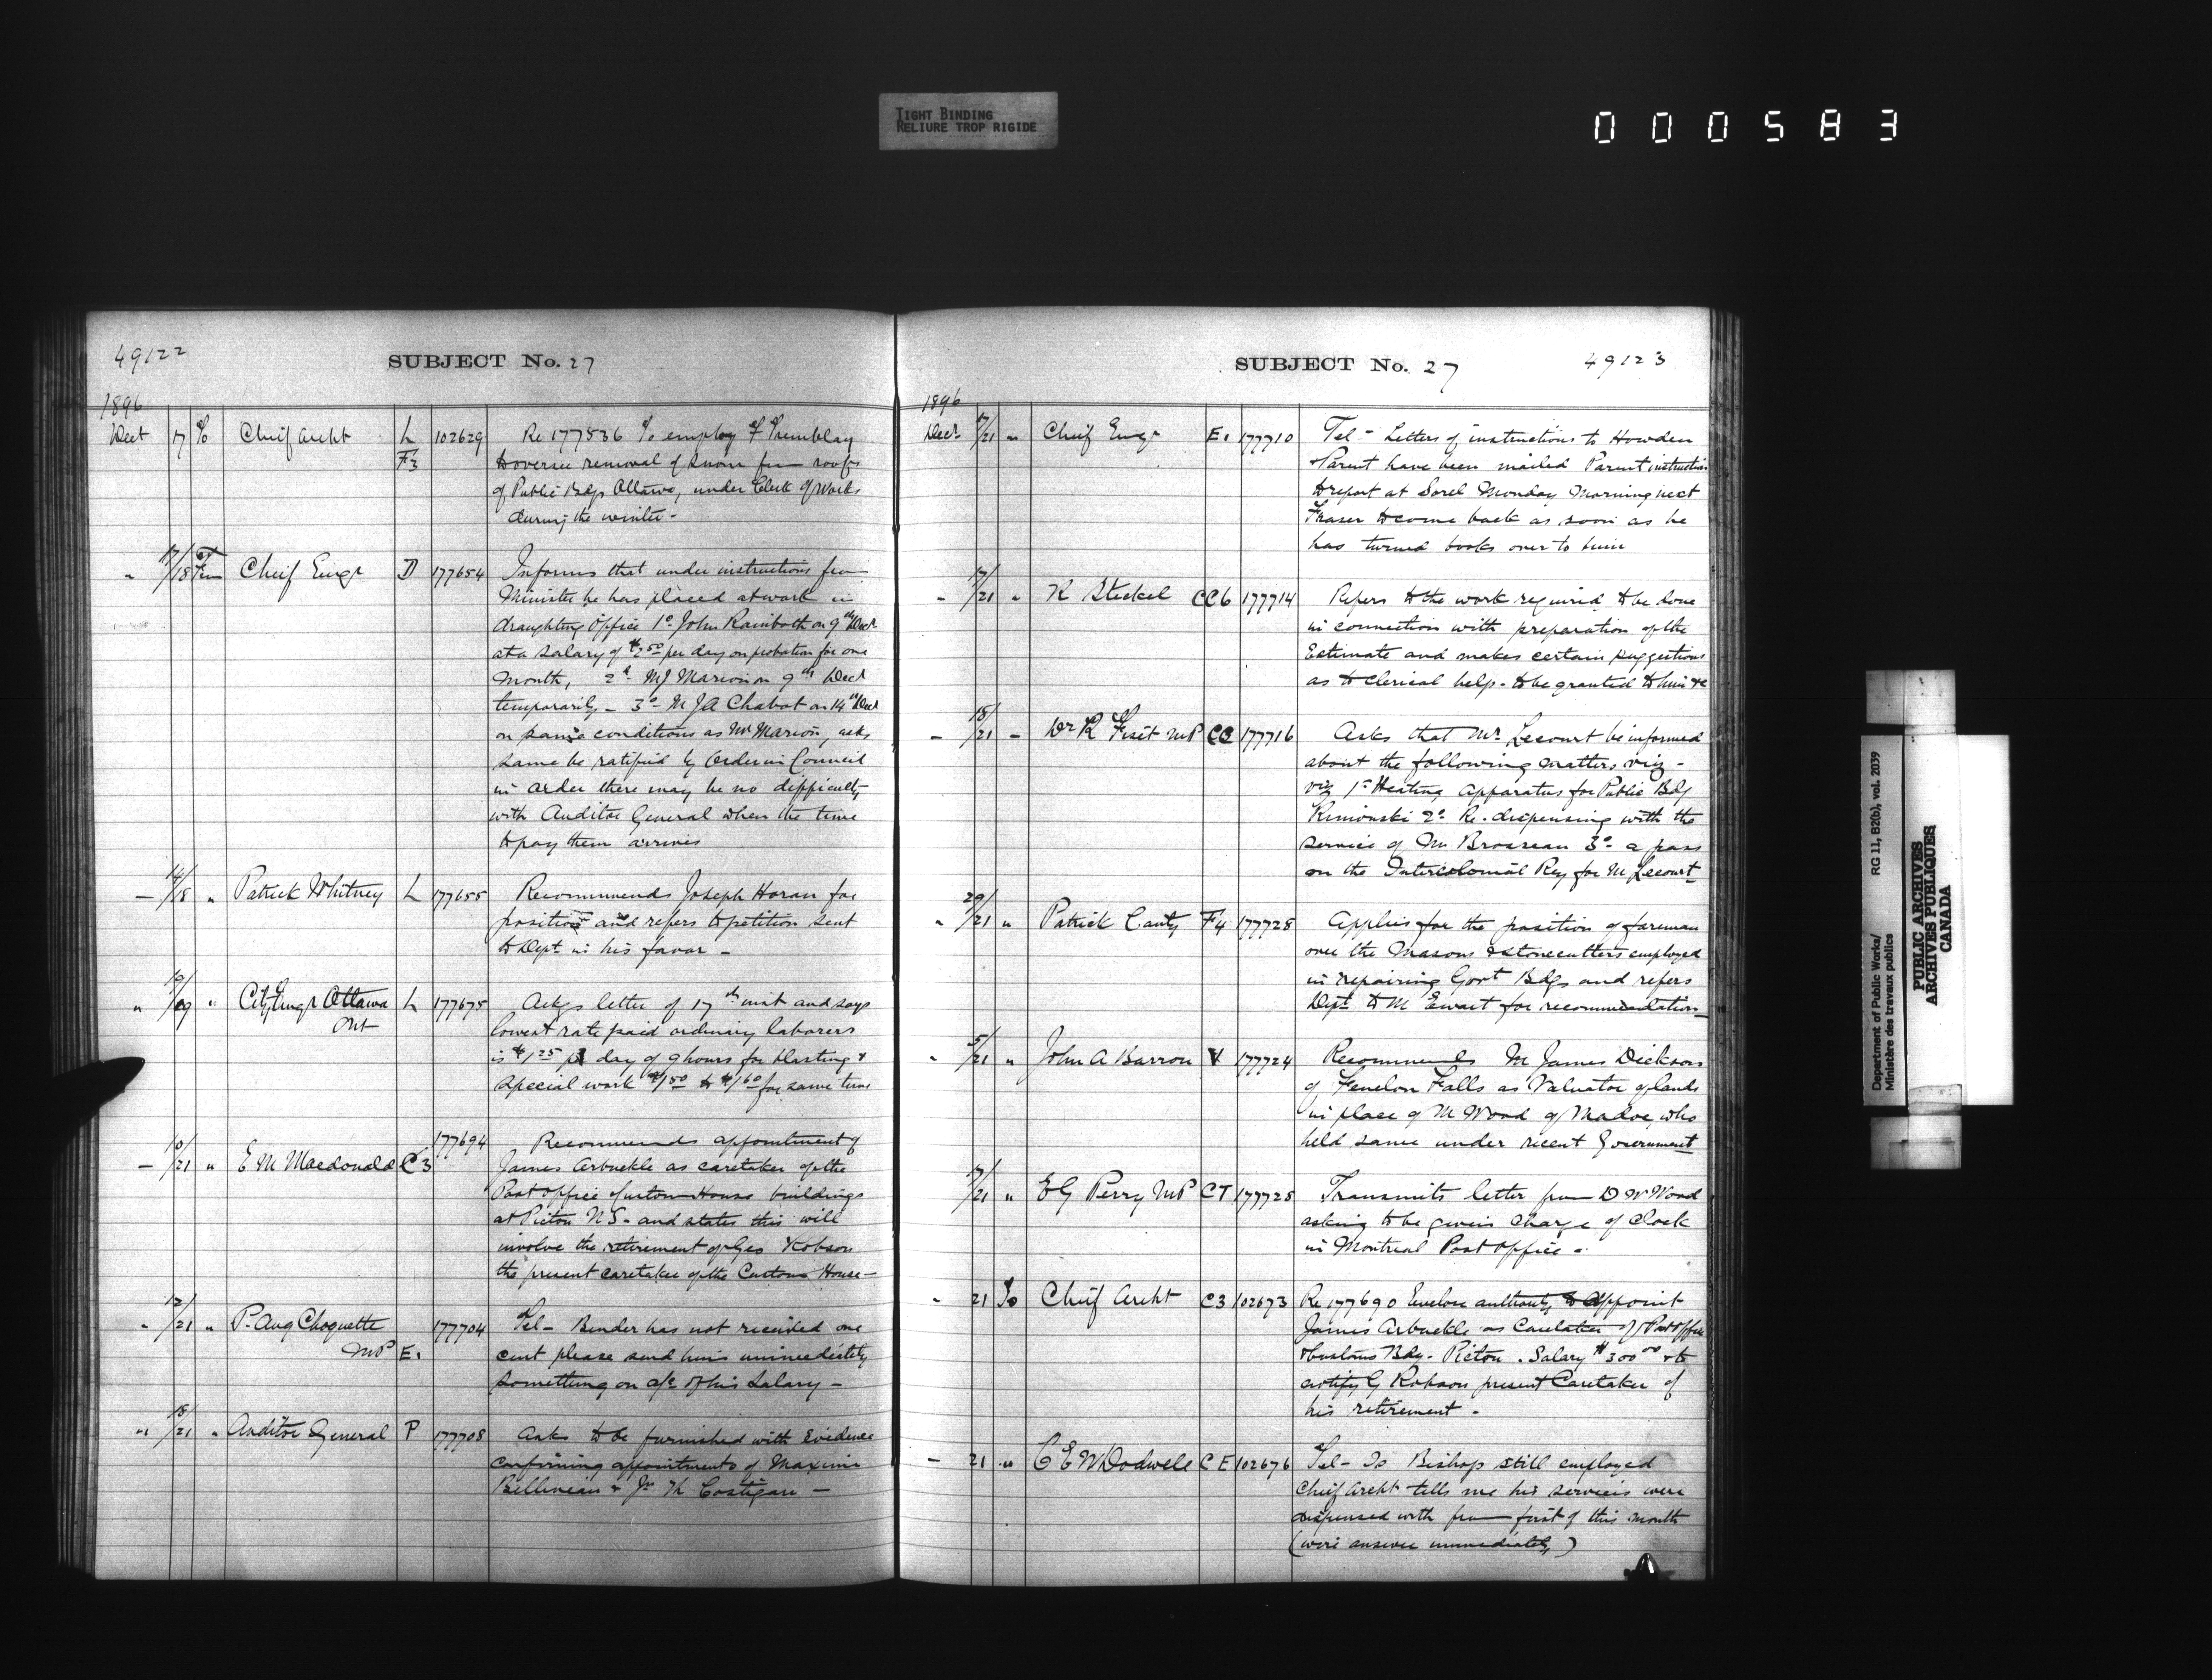 TIGHT BINDING
RELIURE TROP RIGIDE
000583
49122
SUBJECT No. 27
1896
Dect 17 To Chief Archt L 102629 Re 177536 To employ F Tremblay
F3 to oversee removal of snow from roofs
of Public Bdgs Ottawa, under Clerk of Works
during the winter -
" 17/18 From Chief Engr D 177654 Informs that under instructions from
Minister he has placed at work in
draughting Office 1o John Rainboth on 9th Dect
at a salary of $2.50 per day on probation for one
month, 2d MJ Marion on 9th Dect
temporarily - 3o M JA Chabot on 14th Dect
on same conditions as Mr Marion, asks
same be ratified by Order in Council
in order there may be no difficulty
with Auditor General when the time
to pay them arrives
- 14/18 " Patrick Whitney L 177655 Recommends Joseph Horan for
position and refers to petition sent
to Dept in his favor -
" 19/19 " City Engr Ottawa L 177675 Ackgs letter of 17th inst and says
Ont lowest rate paid ordinary laborers
is $1.25 pr day of 9 hours for blasting &
special work $1.50 to $1.60 for same time
177694 Recommends appointment of
- 10/21 " E M Macdonald C3 James Arbuckle as caretaker of the
Post Office Custom House buildings
at Pictou N.S. - and states this will
involve the retirement of Geo Robson
the present caretaker of the Customs House -
" 12/21 " P. Aug Choquette 177704 Tel - Binder has not received one
MP E. cent please send him immediately
something on a/c of his salary -
" 18/21 " Auditor General P 177708 Asks to be furnished with Evidence
confirming appointments of Maxime
Belliveau & Costigan -
SUBJECT No. 27
49123
1896
Dect 17/21 " Chief Engr E. 177710 Tel - Letters of instructions to Howden
& Parent have been mailed Parent instructions
to report at Sorel Monday Morning next
Fraser to come back as soon as he
has turned books over to him
- 17/21 " R Steckel CC6 177714 Refers to the work required to be done
in connection with preparation of the
Estimate and makes certain suggestions
as to clerical help - to be granted to him &c
- 18/21 - Dr R Fiset MP CC 177716 Asks that Mr Lecourt be informed
about the following matters viz -
viz 1o Heating Apparatus for Public Bdg
Rimouski 2o Re - dispensing with the
service of Mr Brosseau 3o - a pass
on the Intercolonial Ry for M Lecourt
" 20/21 " Patrick Canty F4 177728 Applies for the position of foreman
over the Masons & stonecutters employed
in repairing Govt Bdgs and refers
Dept to M Ewart for recommendation
" 5/21 " John A Barron V 177724 Recommends M James Dickson
of Fenelon Falls as Valuator of lands
in place of M Wood of Madoc, who
held same under recent Government
17/21 " E G Perry MP CT 177725 Transmits letter from D W Wood
asking to be given charge of clock
in Montreal Post Office -
" 21 To Chief Archt C3 102673 Re 177690 Enclose authority to appoint
James Arbuckle as Caretaker of Post Office
& Customs Bdg - Pictou . Salary $300.00 & to
notify G Robson present Caretaker of
his retirement -
- 21 " C E W Dodwell CE 102676 Tel - Is Bishop still employed
Chief Archt tells me his services were
dispensed with from first of this month
(wire answer immediately)
Department of Public Works/
Ministère des travaux publics
RG 11, B2(b), vol. 2039
PUBLIC ARCHIVES
ARCHIVES PUBLIQUES
CANADA